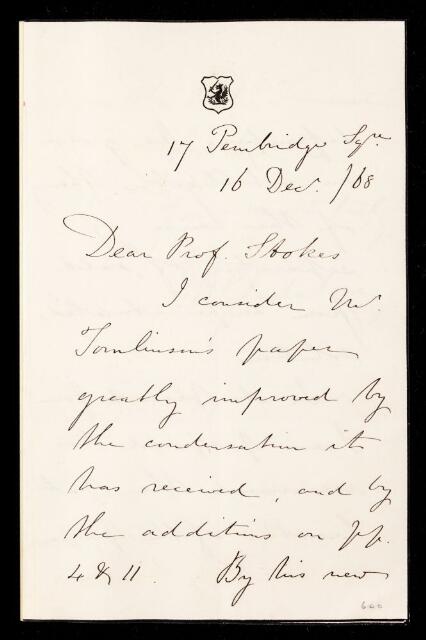 17 Pembridge Sqre
16 Decr. /68
Dear Prof. Stokes
I consider Mr.
Tomlinson's paper
greatly improved by
the condensation it
has received, and by
the additions on pp.
4 & 11. By his new
600